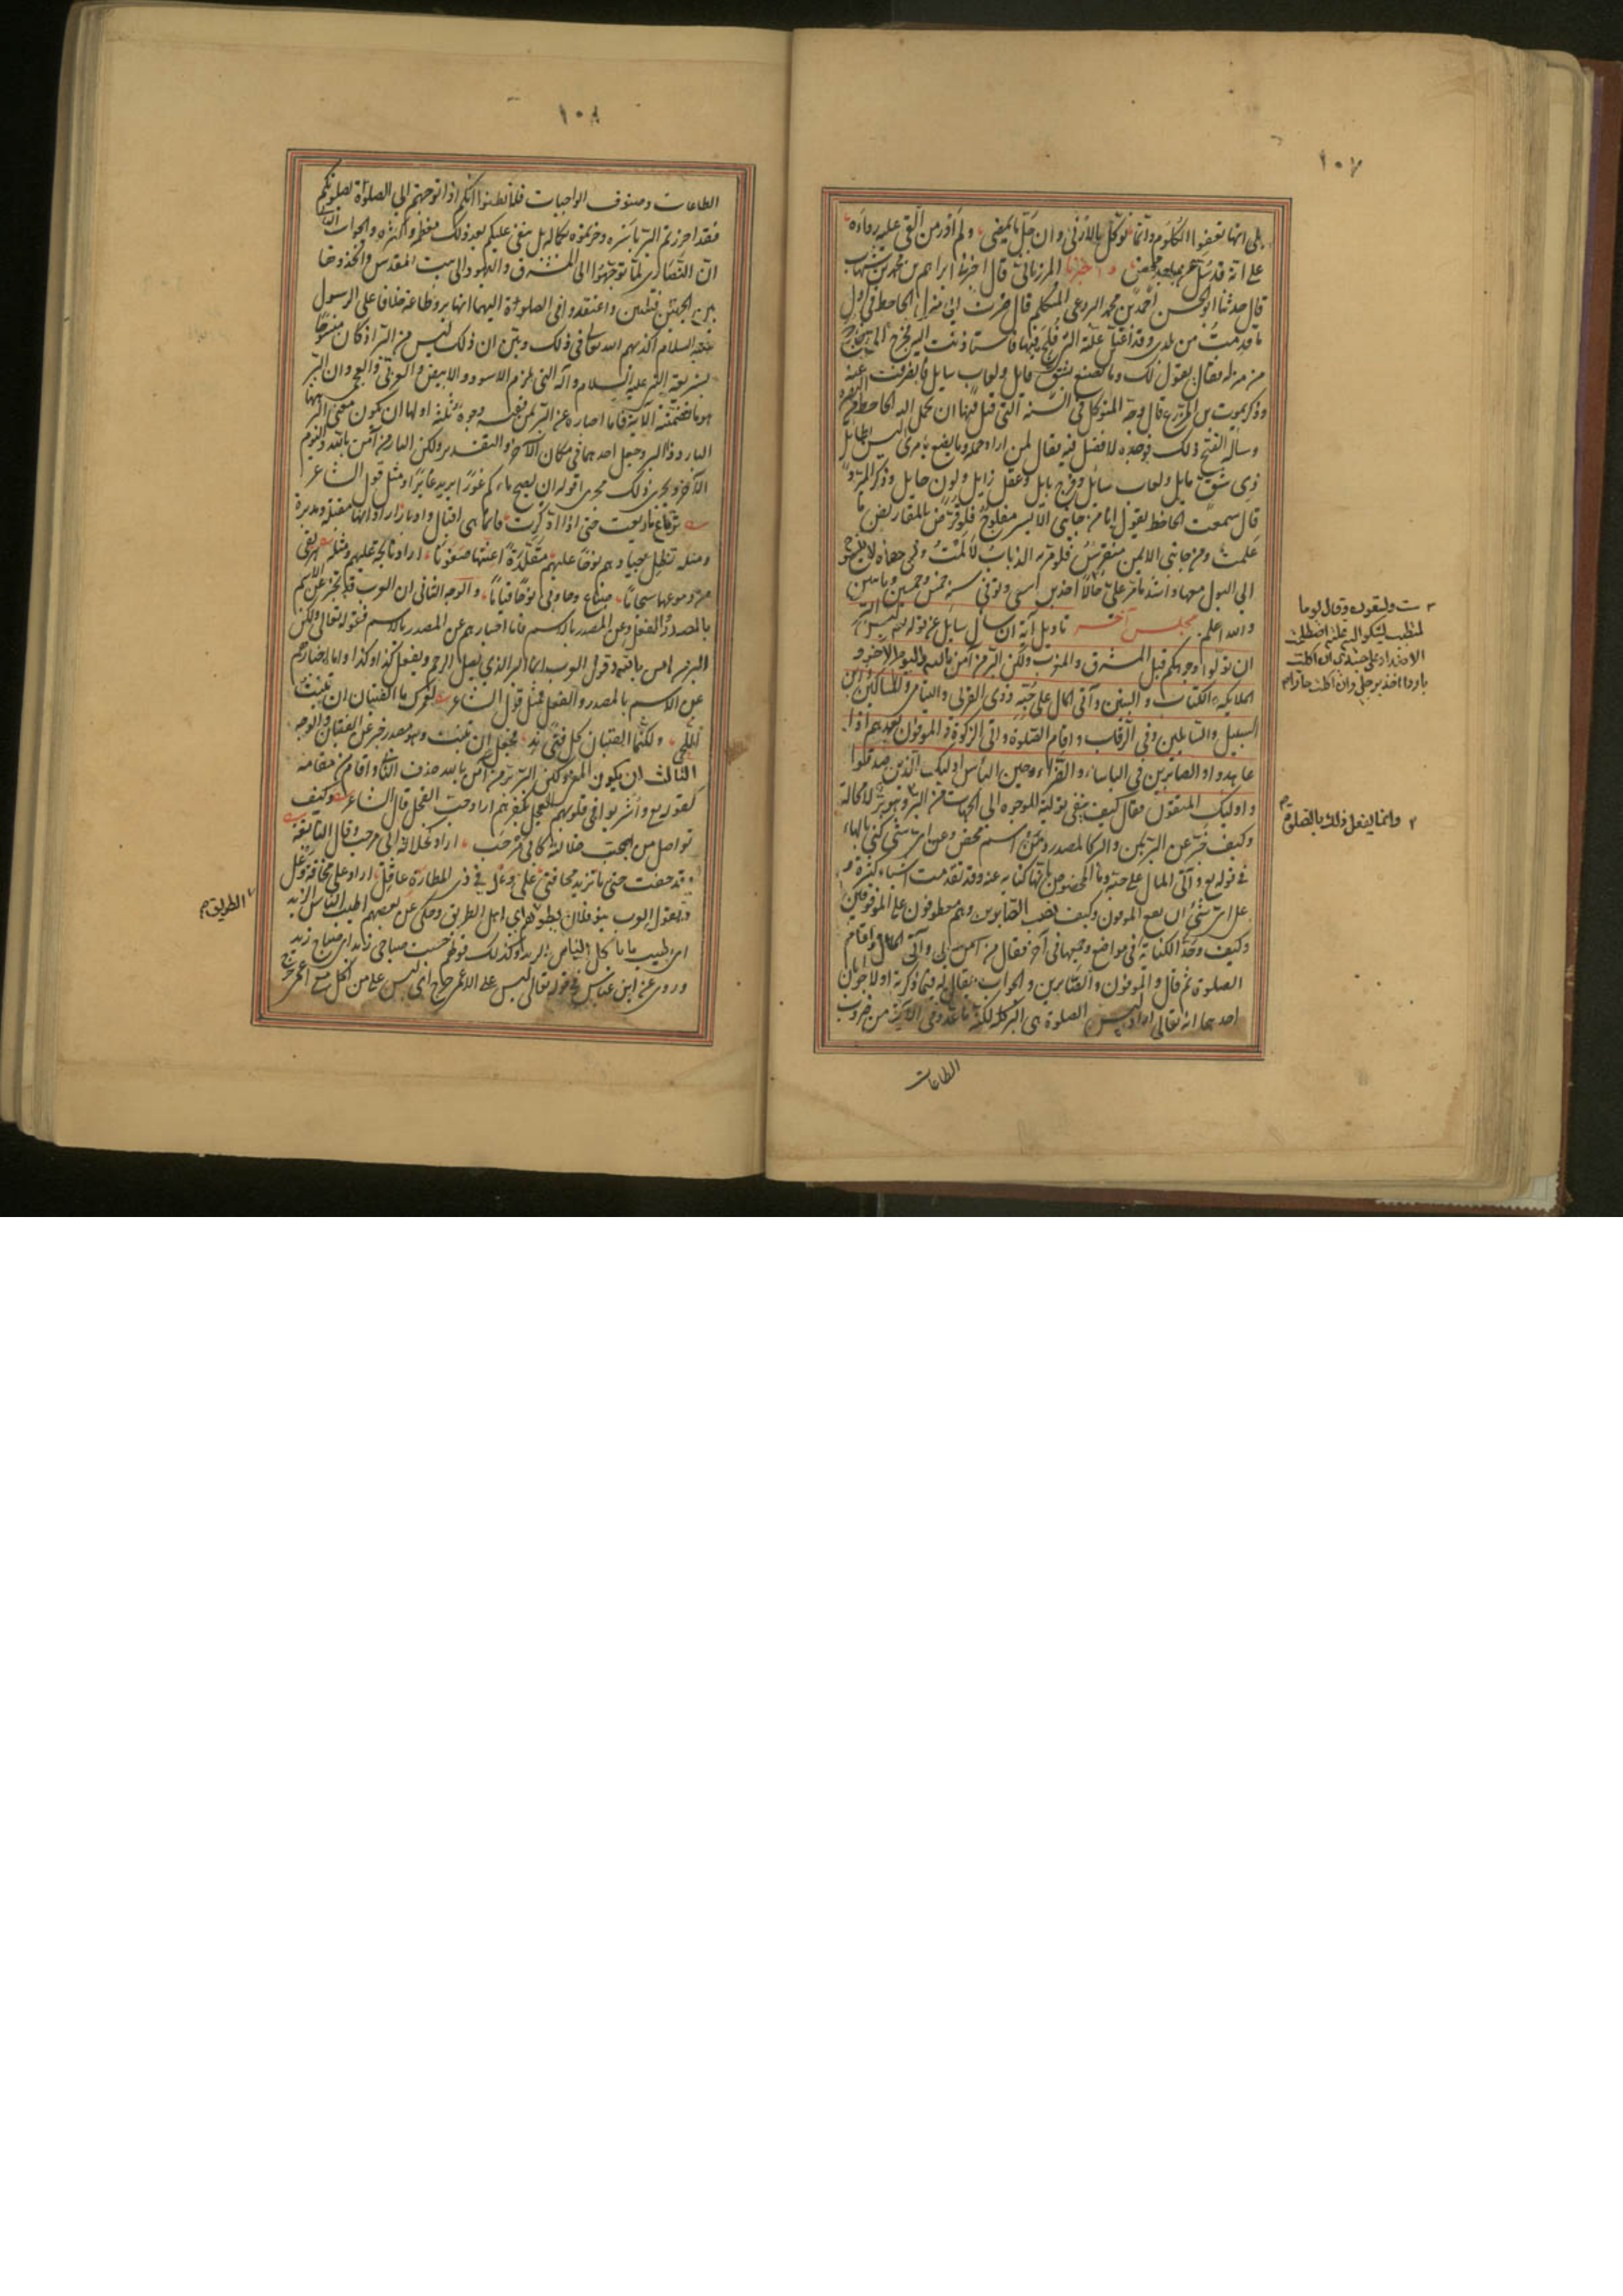 ١٠٧
بلى انها تعفوا الكلوم وانما نوكل بالادنى وان جل ما يمضى ولم ادر من القى عليه رداءه
على انه قد سل عن ماجد محض واخبرنا المرزبانى قال اخبرنا ابراهيم بن محمد بن شهاب
قال حدثنا ابو الحسن احمد بن محمد البردعى المتكلم قال صرت الى منزل الجاحظ فى اول
ما قدمت من بلدى وقد اعتل علة التى فلج فيها فاستاذنت اليه فخرج الى
من منزله فقال يقول لك وما تصنع بشق مايل ولعاب سايل فانصرفت عنه
وذكر يموت بن المزرع قال وجه المتوكل فى السنة التى قتل فيها ان يحمل اليه الجاحظ من البصرة
وساله الفتح ذلك فوجده لا فضل فيه فقال لمن اراد حمله وما يصنع بامرى ليس بطايل
ذى شق مايل ولعاب سائل وفرج بايل وعقل زايل ولون حايل وذكر المبرد
قال سمعت الجاحظ يقول انا من جانبى الايسر مفلوج فلو قرض بالمقاريض ما
علمت ومن جانبى الايمن منقرس فلو مر به الذباب لالمت وبى حصاة لا ينسرح
الى البول معها واشد ما مر على ست وتسعون وتوفى سنة خمس وخمسين وماتين
والله اعلم مجلس آخر تاويل آية ان سال سايل عن قوله تعالى ليس البر
ان تولوا وجوهكم قبل المشرق والمغرب ولكن البر من آمن بالله واليوم الآخر و
الملايكة والكتاب والنبين وآتى المال على حبه ذوى القربى واليتامى والمساكين وابن
السبيل والسائلين وفى الرقاب واقام الصلوة وآتى الزكوة والموفون بعهدهم اذا
عاهدوا والصابرين فى الباساء والضراء وحين الباس اوليك الذين صدقوا
واوليك المتقون فقال كيف ينفى تولية الوجوه الى الجهات من البر وهو بر لا محالة
وكيف خبر عن البر بمن والبر كالمصدر ومن اسم محض وعن اى شئ كنى بالهاء
فى قوله تع وآتى المال على حبه وما المخصوص بانها كناية عنه وقد تقدمت اشياء كثيرة و
على اى شئ ارتفع الموفون وكيف نصب الصابرين وهم معطوفون على الموفين
وكيف وحد الكناية فى مواضع وجمعها فى آخر فقال من آمن بالله وآتى المال واقام
الصلوة ثم قال والموفون والصابرين والجواب يقال له فيما ذكرته اولا جوابان
احدهما انه تعالى اراد ليس الصلوة هى البر كله لكنه ما عدد فى الآية من ضروب
الطاعات
ست وتسعون وقال يوما
لمتطبب يشكو اليه علته اصطلحت
الاضداد على جسدى ان اكلت
باردا اخذ برجلى وان اكلت حارا
وانما يفعل ذلك بالصلوة
١٠٨
الطاعات وصنوف الواجبات فلا تظنوا انكم اذا توجهتم الى الصلوة بصلوتكم
فقد احرزتم البر باسره وحزتموه بكماله بل يبقى عليكم بعد ذلك معظمه واكثره والجواب الثانى
ان النصارى لما توجهوا الى المشرق واليهود الى بيت المقدس واتخذوا هاتين
الجهتين قبلتين واعتقدوا فى الصلوة اليهما انها بر وطاعة خلافا على الرسول
عليه السلام اكذبهم الله تعالى فى ذلك وبين ان ذلك ليس من البر اذ كان منسوخا
بشريعة النبى عليه السلام وآله التى تلزم الاسود والابيض والعربى والعجمى وان البر
هو ما تضمنته الآية فاما اخباره عن البر بمن ففيه وجوه ثلثة اولها ان يكون معنى البر هنا
البار وذا البر وجعل احدهما فى مكان الآخر والتقدير ولكن البار من آمن بالله واليوم
الآخر ويجرى ذلك مجرى قوله ان يصبح ماءكم غورا يريد غايرا ومثل قول الشاعر
ترتع ما رتعت حتى اذا ادكرت فانما هى اقبال وادبار اراد انها مقبلة ومدبرة
ومثله تظل جيادهم نوحا عليهم مقلدة اعنتها صفونا اراد نايحة عليهم ومثله
من دموعهما سجاما ضباع وجاوبى نوحا قياما والوجه الثانى ان العرب قد تخبر عن الاسم
بالمصدر والفعل وعن المصدر بالاسم فاما اخبارهم عن المصدر بالاسم فقوله تعالى ولكن
البر من آمن بالله وقول العرب انما البر الذى يصل الرحم ويفعل كذا وكذا واما اخبارهم
عن الاسم بالمصدر والفعل فمثل قول الشاعر لعمرك ما الفتيان ان تنبت
اللحى ولكنما الفتيان كل فتى ند فجعل ان تنبت وهو مصدر خبر عن الفتيان والوجه
الثالث ان يكون المعنى ولكن البر بر من آمن بالله فحذف الثانى واقام من مقامه
كقوله تع واشربوا فى قلوبهم العجل بكفرهم اراد حب العجل قال الشاعر وكيف
تواصل من اصبحت خلالته كابى مرحب اراد كخلالة ابى مرحب وقال النابغة
وقد خفت حتى ما تزيد مخافتى على وعل فى ذى المطارة عاقل اراد على مخافة وعل
وتقول العرب بنو فلان يطوهم اى اهل الطريق وحكى عن بعضهم اطيب الناس الزبد
اى اطيب ما ياكل الناس الزبد وكذلك قولهم حسبت صباحى زيدا اى صباح زيد
وروى عن ابن عباس فى قوله تعالى ليس على الاعرج حرج اى ليس على من اكل مع الاعرج حرج
الطريق